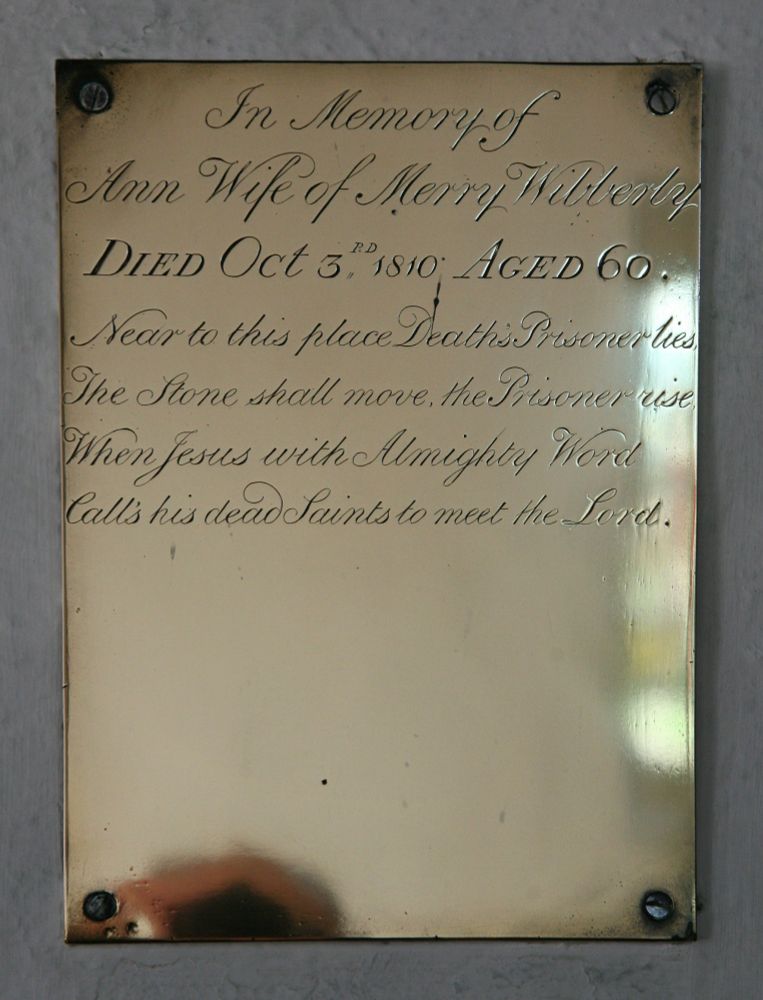 In Memory of
Ann Wife of Merry Wibberly
DIED Oct 3RD 1810 AGED 60.
Near to this place Death's Prisoner lies,
The Stone shall move, the Prisoner rise,
When Jesus with Almighty Word
Call's his dead Saints to meet the Lord.